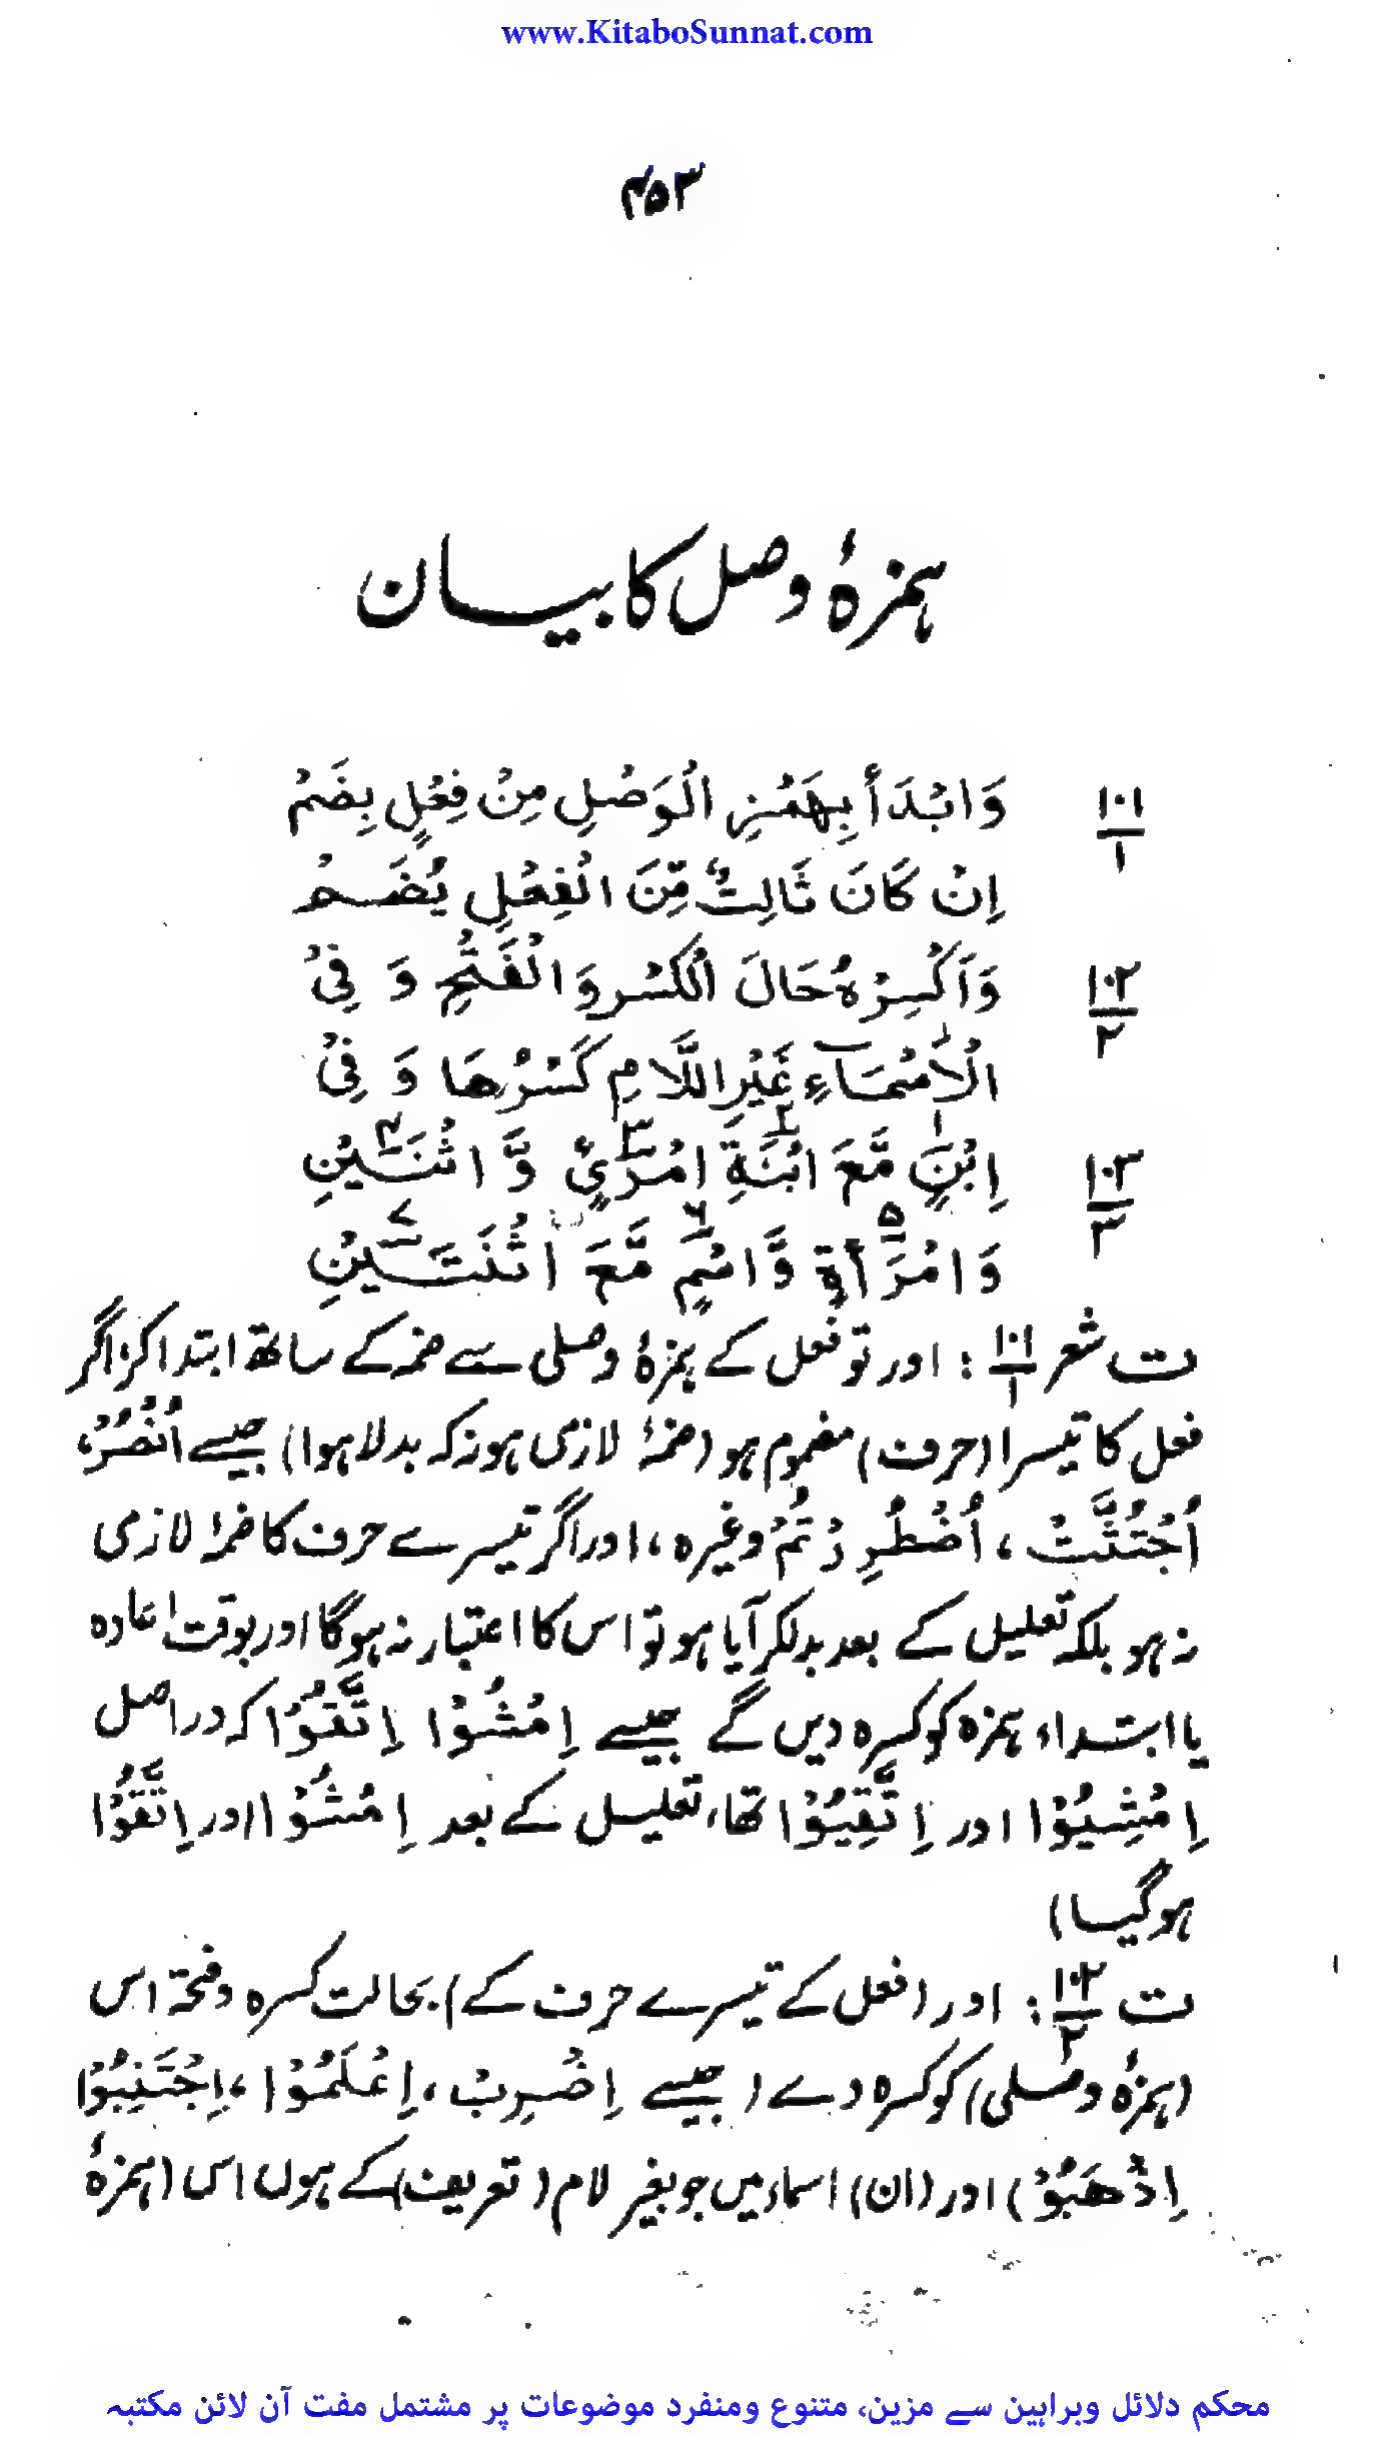 www.KitaboSunnat.com
۴۵۳
ہمزۂ وصل کا بیان
۱۰۱/۱ وَابْدَأْ بِهَمْزِ الْوَصْلِ مِنْ فِعْلٍ بِضَمْ
اِنْ كَانَ ثَالِثٌ مِّنَ الْفِعْلِ يُضَمْ
۱۰۲/۲ وَاَكْسِرْهُ حَالَ الْكَسْرِ وَالْفَتْحِ وَ فِيْ
الْاَسْمَآءِ غَيْرِ اللَّامِ كَسْرُهَا وَ فِيْ
۱۰۳/۳ اِبْنٍ۱ مَّعَ ابْنَةِ۲ امْرِئٍ۳ وَّ اثْنَيْنِ۴
وَ امْرَأَةٍ۵ وَّ اسْمٍ۶ مَّعَ اثْنَتَيْنِ۷
ت شعر ۱۰۱/۱ : اور تو فعل کے ہمزۂ وصلی سے ضمہ کے ساتھ ابتدا کر اگر
فعل کا تیسرا (حرف) مضموم ہو (ضمۂ لازمی ہو نہ کہ بدلا ہوا) جیسے اُنْصُرْ،
اُجْتُثَّتْ ، اُضْطُرِرْتُمْ وغیرہ، اور اگر تیسرے حرف کا ضمۂ لازمی
نہ ہو بلکہ تعلیل کے بعد بدلکر آیا ہو تو اس کا اعتبار نہ ہوگا اور بوقت اعادہ
یا ابتداء ہمزہ کو کسرہ دیں گے جیسے اِمْشُوْا اِتَّقُوْا کہ دراصل
اِمْشِيُوْا اور اِتَّقِيُوْا تھا، تعلیل کے بعد اِمْشُوْا اور اِتَّقُوْا
ہوگیا)
ت ۱۰۲/۲ : اور (فعل کے تیسرے حرف کے) بحالت کسرہ وفتحہ اس
(ہمزۂ وصلی) کو کسرہ دے (جیسے اِضْرِبْ ، اِعْلَمُوْا ، اِجْتَنِبُوْا
اِذْهَبُوْ) اور (ان) اسماء میں جو بغیر لام (تعریف) کے ہوں اس (ہمزۂ
محکم دلائل وبراہین سے مزین، متنوع ومنفرد موضوعات پر مشتمل مفت آن لائن مکتبہ